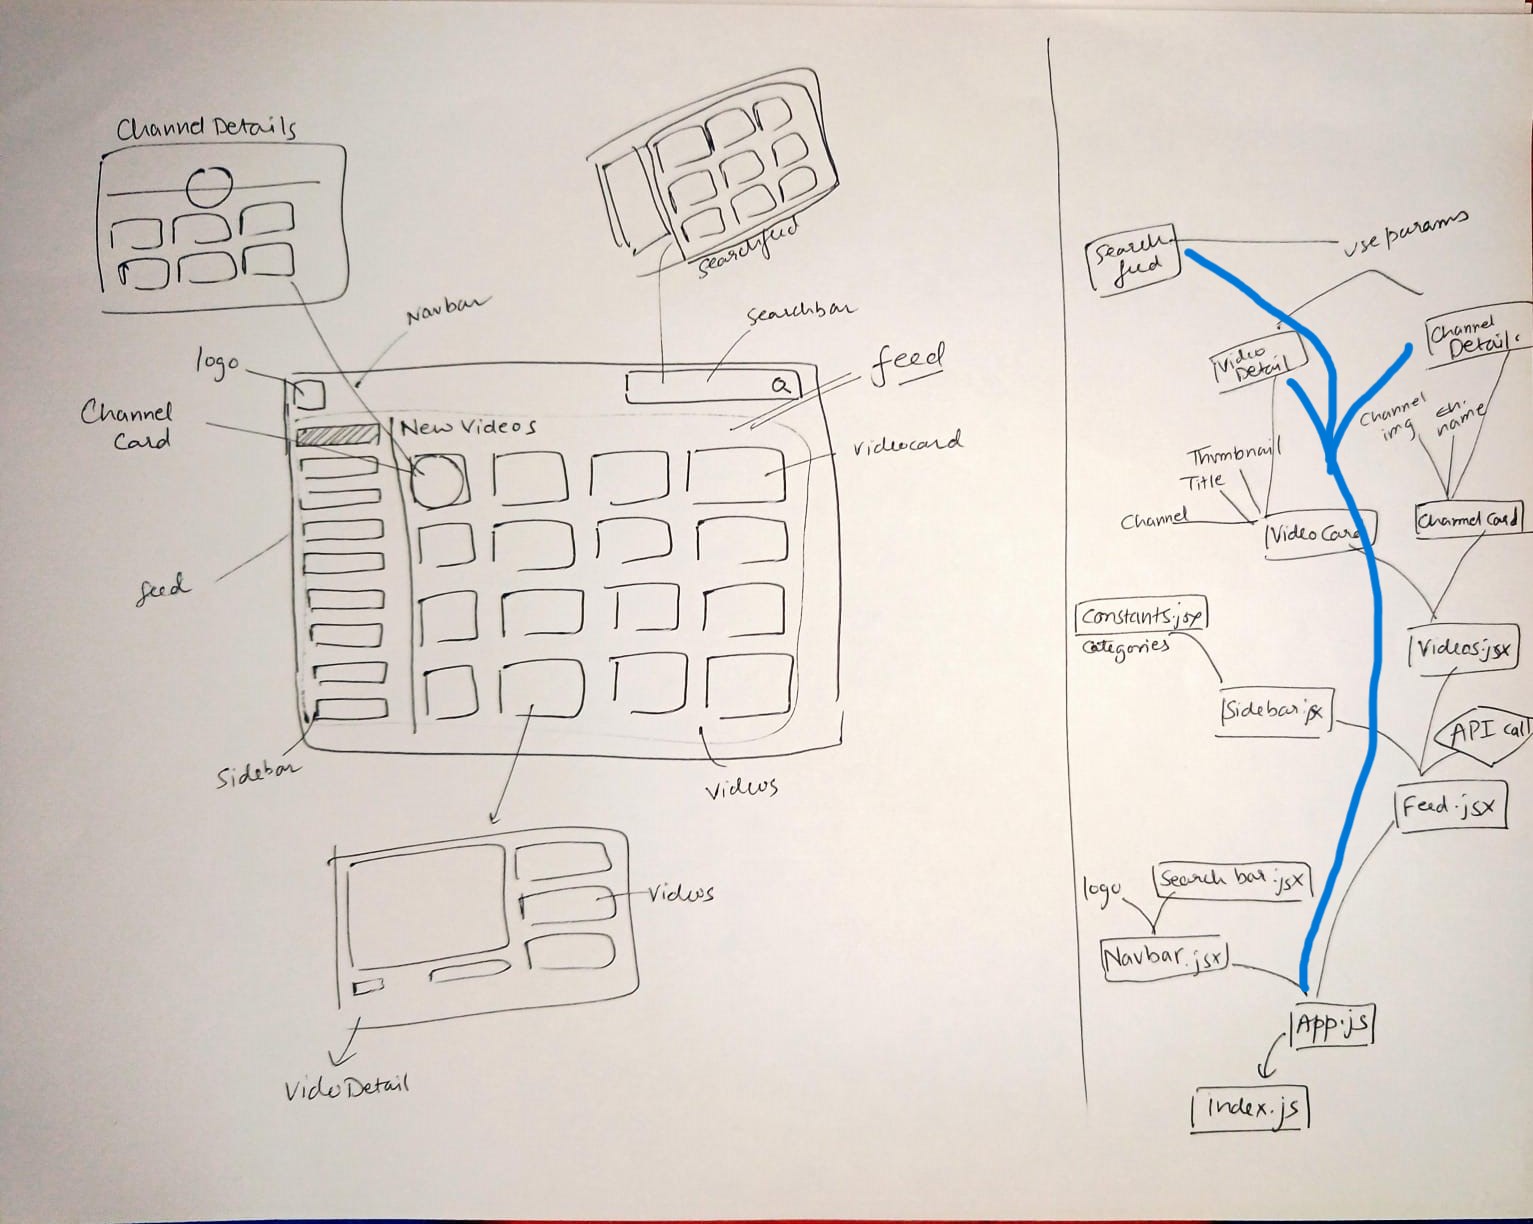 Channel Details
Searchfeed
Navbar
Searchbar
logo
feed
Channel
Card
New Videos
videocard
feed
Sidebar
Videos
Videos
Video Detail
Search
feed
use params
Video
Detail
Channel
Detail.
Channel
img
ch.
name
Thumbnail
Title
Channel
Video Card
Channel Card
Constants.jsx
Categories
Videos.jsx
Sidebar.jsx
API call
Feed.jsx
logo
Search bar.jsx
Navbar.jsx
App.js
index.js